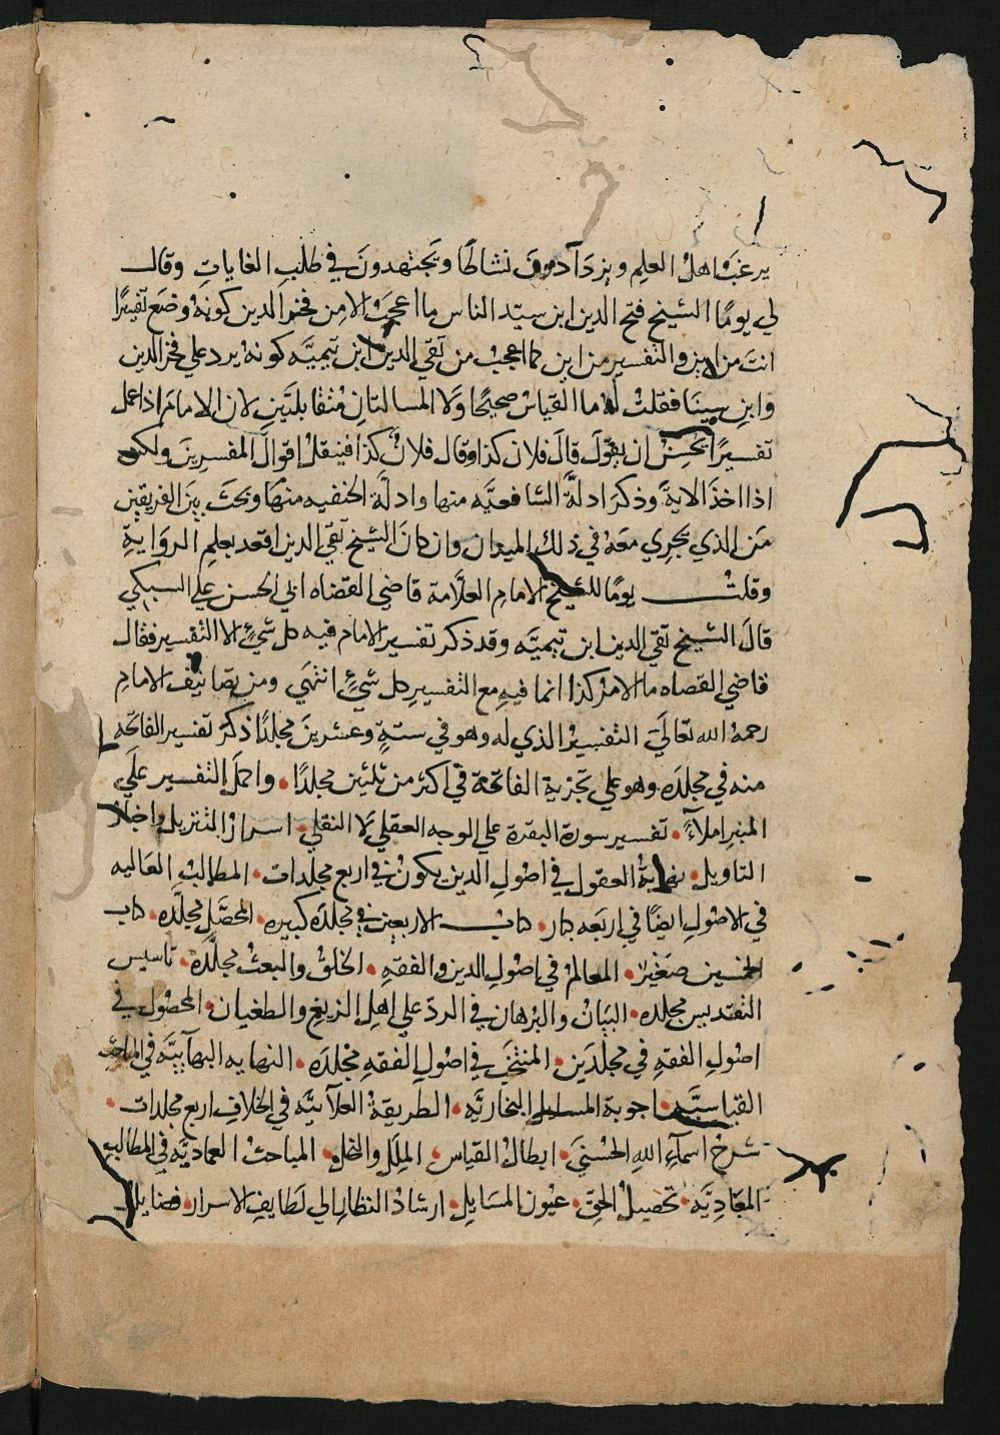 يرغبُ اهلُ العلم ويزدآدونَ نشاطًا ويَجتهدونَ في طلبِ الغاياتِ وقال
لي يومًا الشيخ فتح الدين ابن سيّد الناس ما اعجبُ الا من فخر الدين كونهُ وضع تفسيرًا
انتَ من اين والتفسير من اين كما اعجبُ من تقي الدين ابن تيميَّه كونهُ يرد علي فخر الدين
وابنِ سينَا فقلتُ لهُ ما القياسُ صحيحًا وَلا المسالتانِ متقابلتَينِ لان الامامَ اذا عمل
تفسيرًا يحسنُ ان يقولَ قالَ فلان كذا وقال فلانٌ كذا فينقلُ اقوالَ المفسرينَ ولكن
اذا اخذَ الايةَ وذكرَ ادلَّةَ الشافعيَّه منها وادلَّة الحنفيه منهَا وبحثَ بينَ الفريقينِ
مَن الذي يجرِي معهُ في ذلك الميدان وان كانَ الشيخ تقي الدين اقعد بعلمِ الروايةِ
وقلتُ يومًا للشيخ الامامِ العلَّامة قاضي القضاه ابي الحسن علي السبكي
قالَ الشيخ تقي الدين ابن تيميَّه وقد ذكر تفسير الامام فيه كل شيءٍ الا التفسير فقال
قاضي القضاه ما الامرُ كذا انما فيهِ مع التفسيرِ كل شيءٍ انتهَي ومن تصَانيف الامامِ
رحمهُ الله تعَاليَ التفسيرُ الذي له وهو في ستةٍ وعشرينَ مجلدًا ذكرَ تفسير الفاتحه
منه في مجلدَه وهو علي تجزيةِ الفاتحة في اكثر من ثلثين مجلدًا . واكملَ التفسير علَي
المنبرِ املآءً . تفسير سورة البقرة علي الوجه العقلي لا النقلي . اسرارُ التنزيل واخبارُ
التاويل . نهايةُ العقول في اصُولِ الدين يكونُ في اربع مجلدات . المطالبُ العَاليه
في الاصُولِ ايضًا في اربعَه كبار . كتابُ الاربعين في مجلدَه كبيره . المحصَّل مجلَّده . كتاب
الخمسين صغيرٌ . المعالمُ في اصُولِ الدين والفقهِ . الخلقُ والبعثُ مجلَّدةٌ . تاسيس
التقديس مجلده . البيَانُ والبُرهان في الردّ علي اهلِ الزيغِ والطغيان . المحصُول في
اصُولِ الفقهِ في مجلدَين . المنتخَب في اصُولِ الفقهِ مجلدَه . النهايه البهآييَّه في المباحث
القياسيَّه . اجوبة المسايل البخاريَّه . الطريقةُ العلآئيَّه في الخلافِ اربع مجلدات .
شرحُ اسمآءِ اللهِ الحُسْنيَ . ابطالُ القياس . المِلَل والنحل . المباحثُ العماديَّه في المطالب
المعَادِيَّه . تحصيلُ الحقّ . عيُون المسَايل . ارشادُ النظار الي لطايفِ الاسرار . فضايل